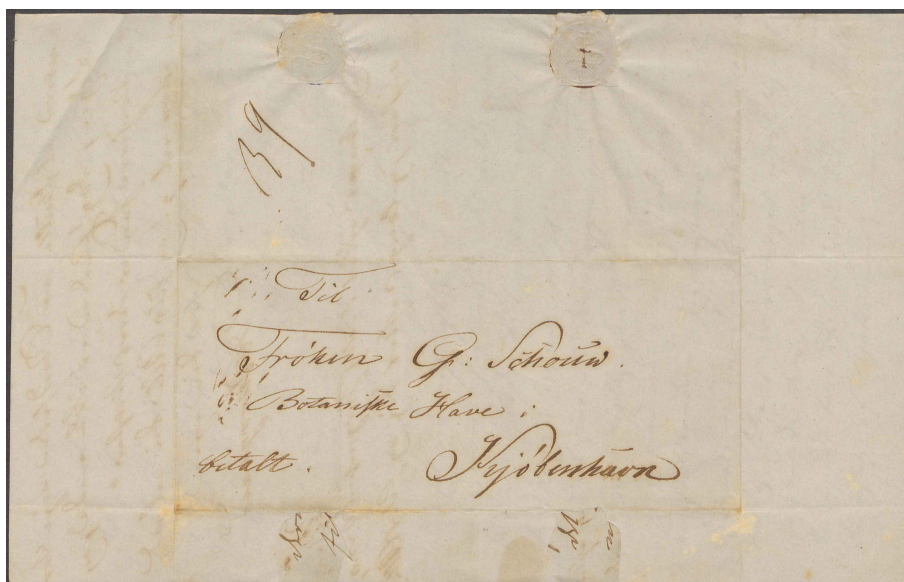 39
Til
Frøken G: Schouw.
Botaniske Have i
betalt. Kjøbenhavn